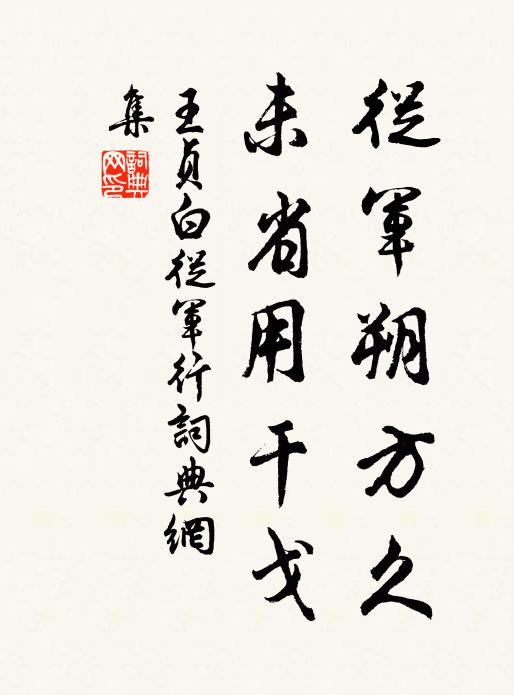 從軍朔方久
未省用干戈
王貞白從軍行詞典網
集
詞典
网印